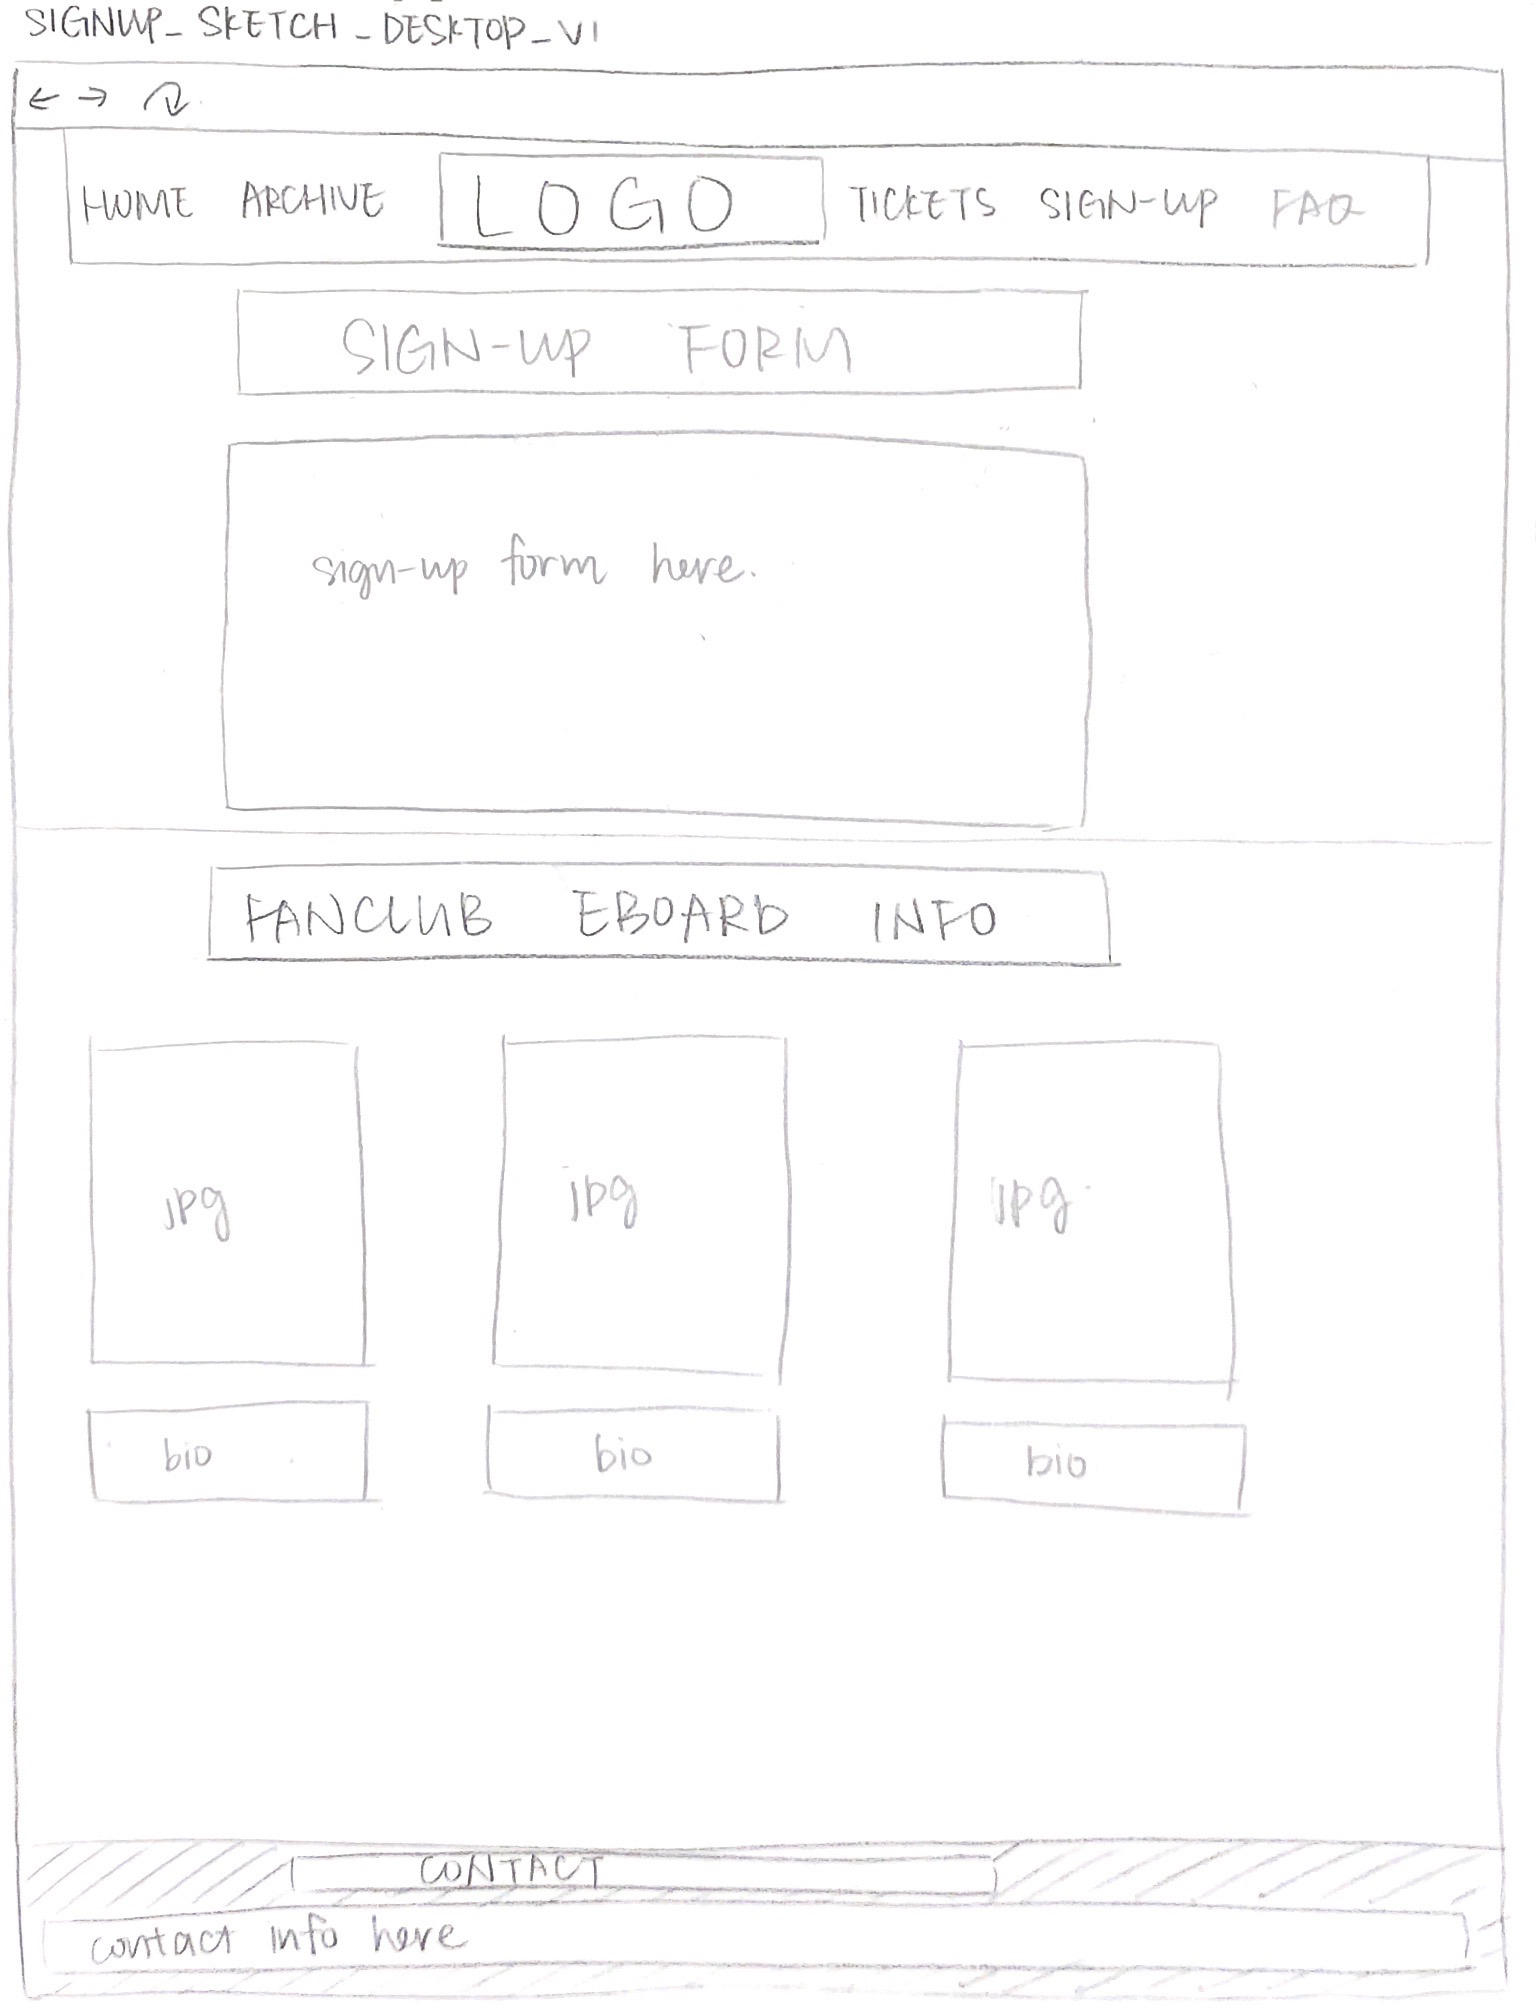 SIGNUP_SKETCH_DESKTOP_V1
HOME ARCHIVE LOGO TICKETS SIGN-UP FAQ
SIGN-UP FORM
sign-up form here.
FANCLUB EBOARD INFO
jpg jpg jpg
bio bio bio
CONTACT
contact info here